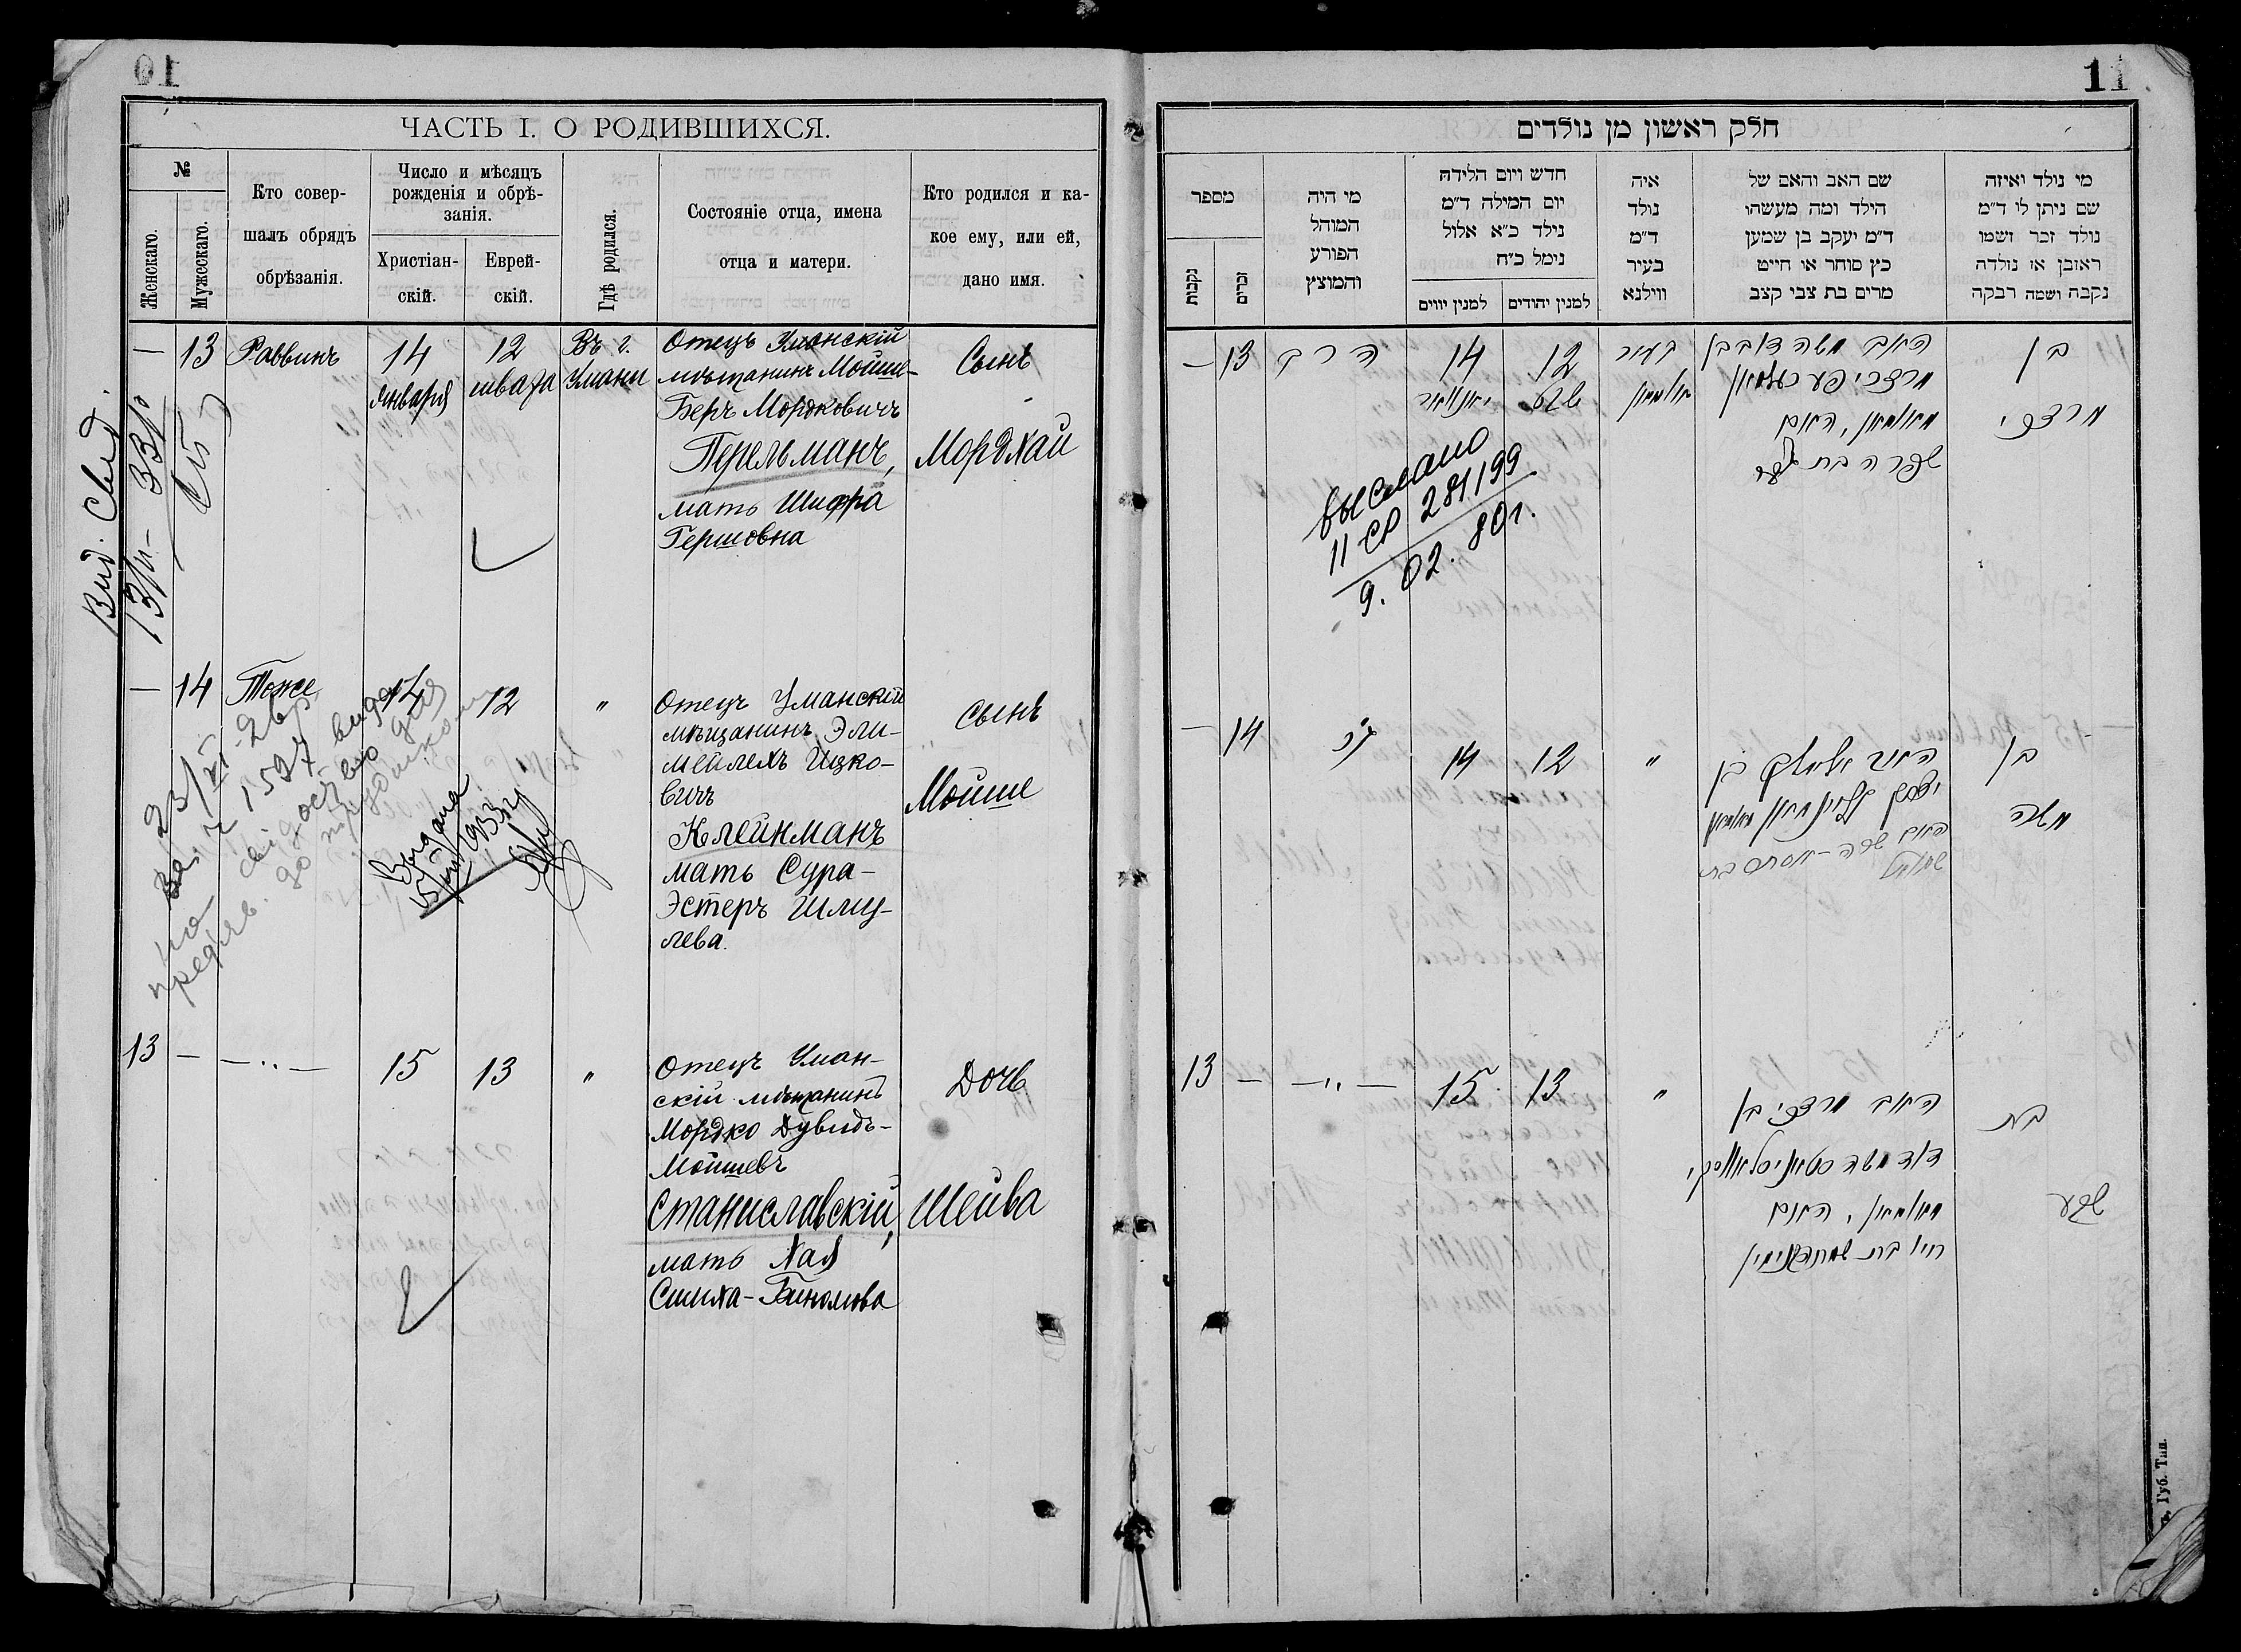 01
ЧАСТЬ I. О РОДИВШИХСЯ.
№
Женскаго.
Мужескаго.
Кто совер-
шалъ обрядъ
обрѣзанія.
Число и мѣсяцъ
рожденія и обрѣ-
занія.
Христіан-
скій.
Еврей-
скій.
Гдѣ родился.
Состояніе отца, имена
отца и матери.
Кто родился и ка-
кое ему, или ей,
дано имя.
— 13 Раввинъ 14 января 12 швата Въ г. Умани
Отецъ Уманскій
мѣщанинъ Мойше-
Беръ Мордковичъ
Перельманъ,
мать Шифра
Гершовна
Сынъ
Мордхай
Вид. Свид.
— 14 Тоже 14 12 "
Отецъ Уманскій
мѣщанинъ Эли-
мейлехъ Ицко-
вичъ
Клейнманъ
мать Сура-
Эстеръ Шму-
лева.
Сынъ
Мойше
Выдана
13 — — " — 15 13 "
Отецъ Уман-
скій мѣщанинъ
Мордко Дувидъ-
Мойшевъ
Станиславскій,
мать Хая
Симха-Биномова
Дочь
Шейва
11
חלק ראשון מן נולדים
מספר
נקבות
זכרים
מי היה
המוהל
הפורע
והמוצץ
חדש ויום הלידה
יום המילה ד"מ
נילד כ"א אלול
נימל כ"ח
למנין יווים
למנין יהודים
איה
נולד
ד"מ
בעיר
ווילנא
שם האב והאם של
הילד ומה מעשהו
ד"מ יעקב בן שמען
כץ סוחר או חייט
מרים בת צבי קצב
מי נולד ואיזה
שם ניתן לו ד"מ
נולד זכר ושמו
ראובן או נולדה
נקבה ושמה רבקה
— 13 הרב 14 יאנואר 12 שבט בעיר אומאן
האב משה דוב בן
מרדכי פערעלמאן
מאומאן, האם
שפרה בת
בן
מרדכי
выслано
11 СР 281199
9. 02. 80г.
— 14 14 12 "
האב אלימלך בן
יצחק קליינמאן מאומאן
האם שרה-אסתר בת
שמואל
בן
משה
13 — — " — 15 13 "
האב מרדכי בן
דוד משה סטאניסלאווסקי
מאומאן, האם
חיה בת
בת
שבע
Губ. Тип.